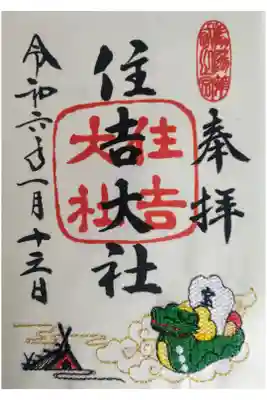 奉拝
住吉大社
住吉
大社
令和六年一月十三日